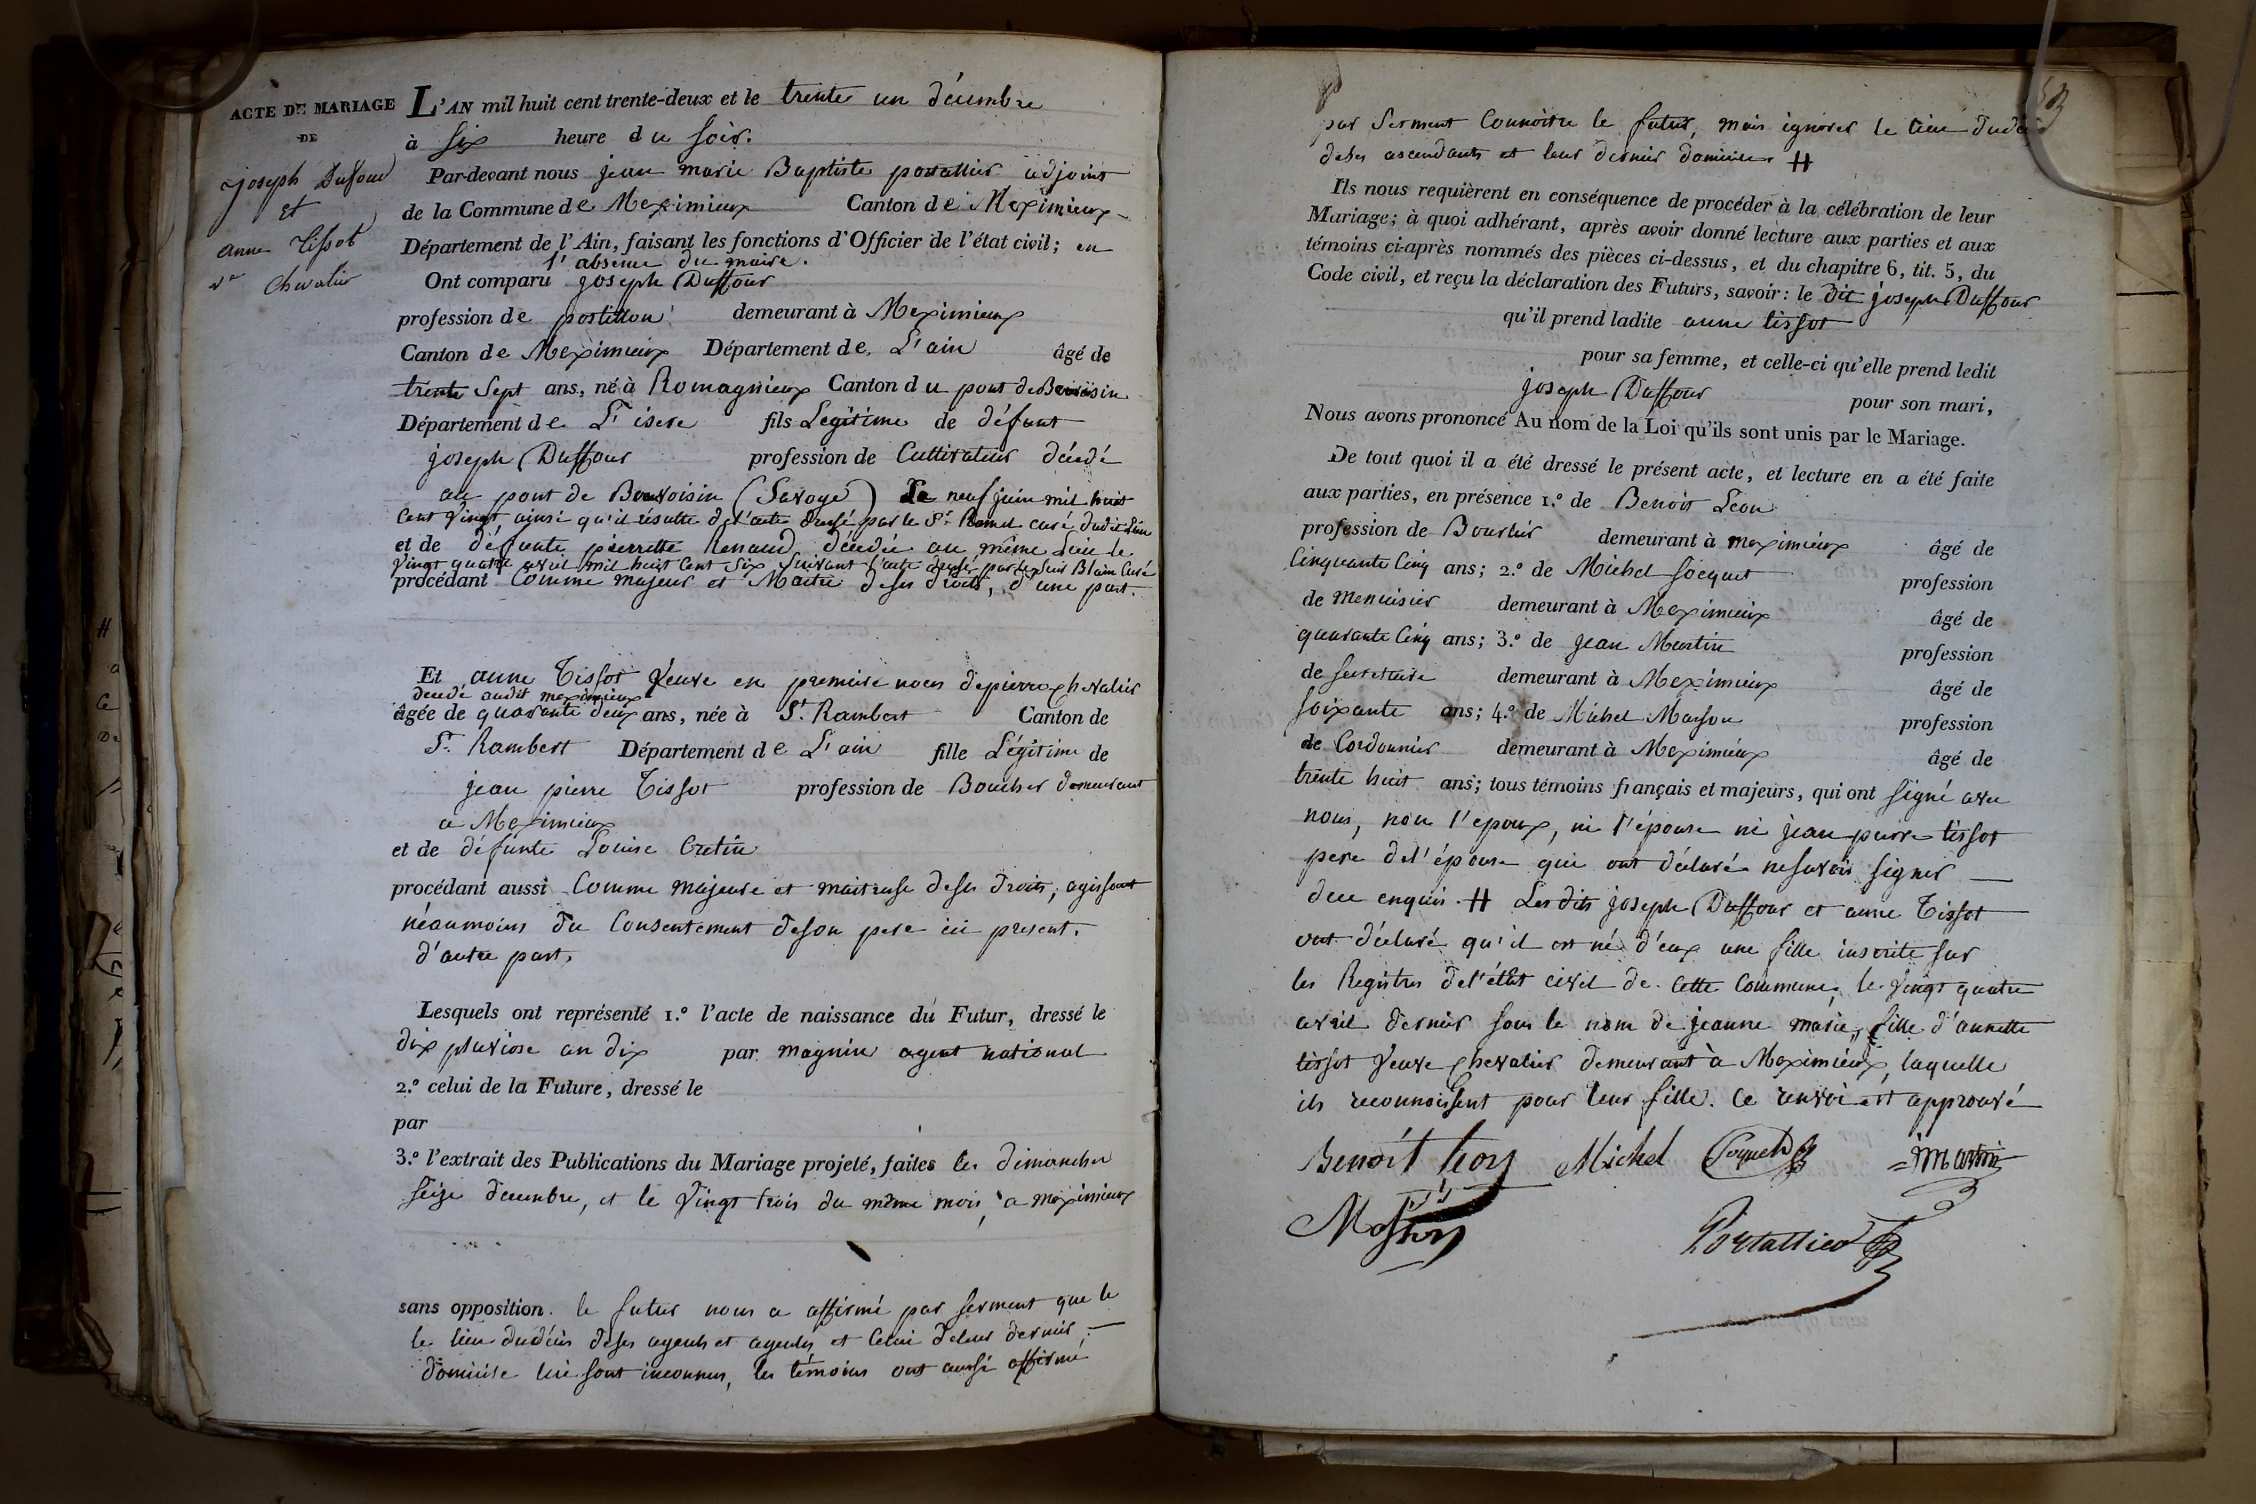 ACTE DE MARIAGE
DE
joseph Dufour
et
anne Tissot
Ve Chevalier
L'AN mil huit cent trente-deux et le trente un décembre
à six heure du soir.
Par-devant nous jean marie Baptiste portallier adjoint
de la Commune de Meximieux Canton de Meximieux
Département de l'Ain, faisant les fonctions d'Officier de l'état civil; en
l'absence du maire.
Ont comparu joseph Duffour
profession de postillon demeurant à Meximieux
Canton de Meximieux Département de L'ain âgé de
trente sept ans, né à Romagnieux Canton du pont de Bauvoisin
Département de L'isere fils Légitime de défunt
joseph Duffour profession de Cultivateur décédé
au pont de Bauvoisin (Savoye) Le neuf juin mil huit
cent vingt, ainsi qu'il résulte de l'acte dressé par le Sr. curé dudit Lieu
et de défunte pierrette Renaud décédée au même Lieu le
vingt quatre avril mil huit cent six suivant l'acte dressé par le Sieur Blain Curé
procédant Comme majeur et Maitre de ses droits, d'une part.
Et anne Tissot Veuve en premiere noces de pierre chevalier
decédé audit meximieux
âgée de quarante deux ans, née à St. Rambert Canton de
St. Rambert Département de L'ain fille Légitime de
jean pierre Tissot profession de Boucher demeurant
a Meximieux
et de défunte Louise Cretin
procédant aussi Comme majeure et maitresse de ses droits, agissant
néaumoins du Consentement de son pere ici present.
d'autre part,
Lesquels ont représenté 1.° l'acte de naissance du Futur, dressé le
dix pluviose an dix par magnin agent national
2.° celui de la Future, dressé le
par
3.° l'extrait des Publications du Mariage projeté, faites les dimanches
seize décembre, et le vingt trois du même mois, a meximieux
sans opposition. le futur nous a affirmé par serment que le
le lieu du décès de ses ayeuls et ayeules et Celui de leur dernier
domicile lui sont inconnus, les témoins ont aussi affirmé
53
par serment Connoitre le futur, mais ignorer le lieu du décès
de ses ascendants et leur dernier domicile. H
Ils nous requièrent en conséquence de procéder à la célébration de leur
Mariage; à quoi adhérant, après avoir donné lecture aux parties et aux
témoins ci-après nommés des pièces ci-dessus, et du chapitre 6, tit. 5, du
Code civil, et reçu la déclaration des Futurs, savoir: le dit joseph Duffour
qu'il prend ladite anne tissot
pour sa femme, et celle-ci qu'elle prend ledit
joseph Duffour pour son mari,
Nous avons prononcé Au nom de la Loi qu'ils sont unis par le Mariage.
De tout quoi il a été dressé le présent acte, et lecture en a été faite
aux parties, en présence 1.° de Benoit Leon
profession de Bourlier demeurant à meximieux âgé de
Cinquante Cinq ans; 2.° de Michel Socquet profession
de menuisier demeurant à Meximieux âgé de
quarante Cinq ans; 3.° de jean Martin profession
de secretaire demeurant à Meximieux âgé de
soixante ans; 4.° de Michel Masson profession
de Cordonnier demeurant à Meximieux âgé de
trente huit ans; tous témoins français et majeurs, qui ont signé avec
nous, non l'epoux, ni l'épouse ni jean pierre tissot
pere de l'épouse qui ont déclaré ne savoir signer
de ce enquis. H Les dits joseph Duffour et anne Tissot
ont déclaré qu'il est né d'eux une fille inscrite sur
les Registres de l'état civil de cette Commune, le vingt quatre
avril dernier sous le nom de jeanne marie, fille d'annette
tissot Veuve Chevalier demeurant à Meximieux, laquelle
ils reconnoissent pour leur fille. Ce renvoi est approuvé
Benoit Leon Michel Soquet Martin
Masson
Portallier